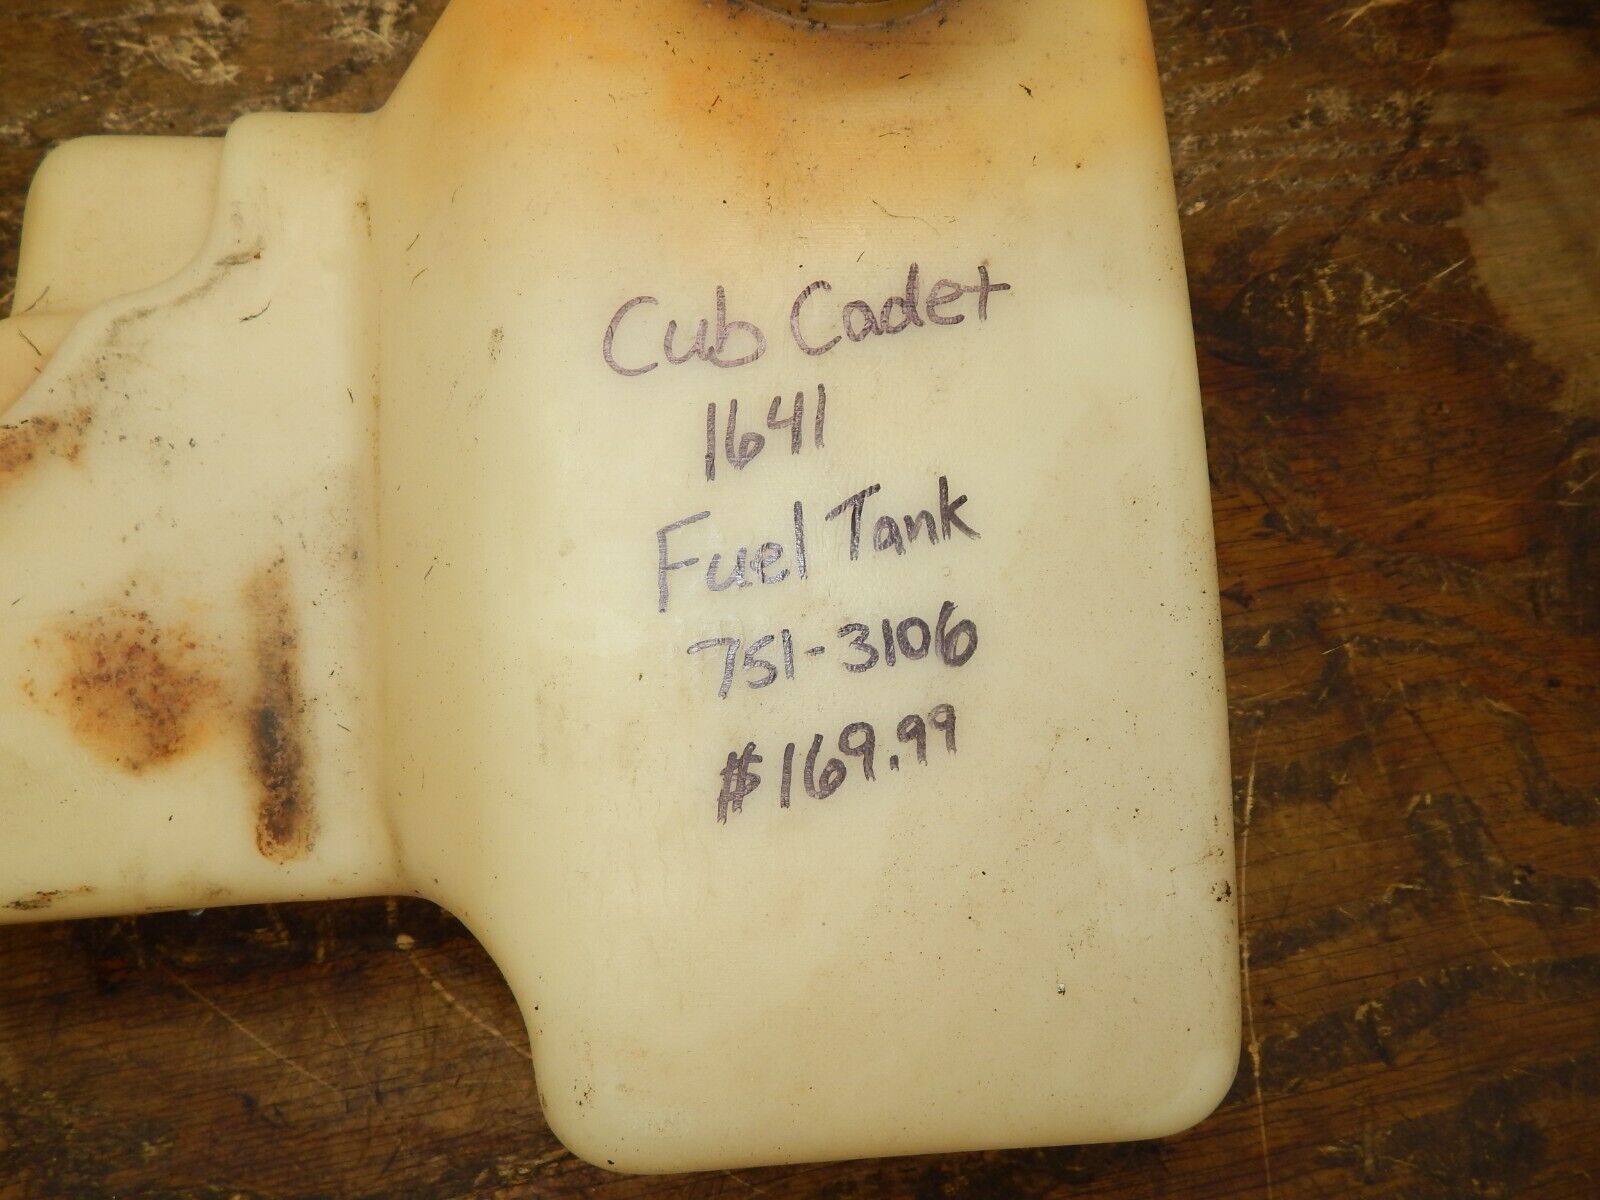 Cub Cadet
1641
Fuel Tank
751-3106
$169.99